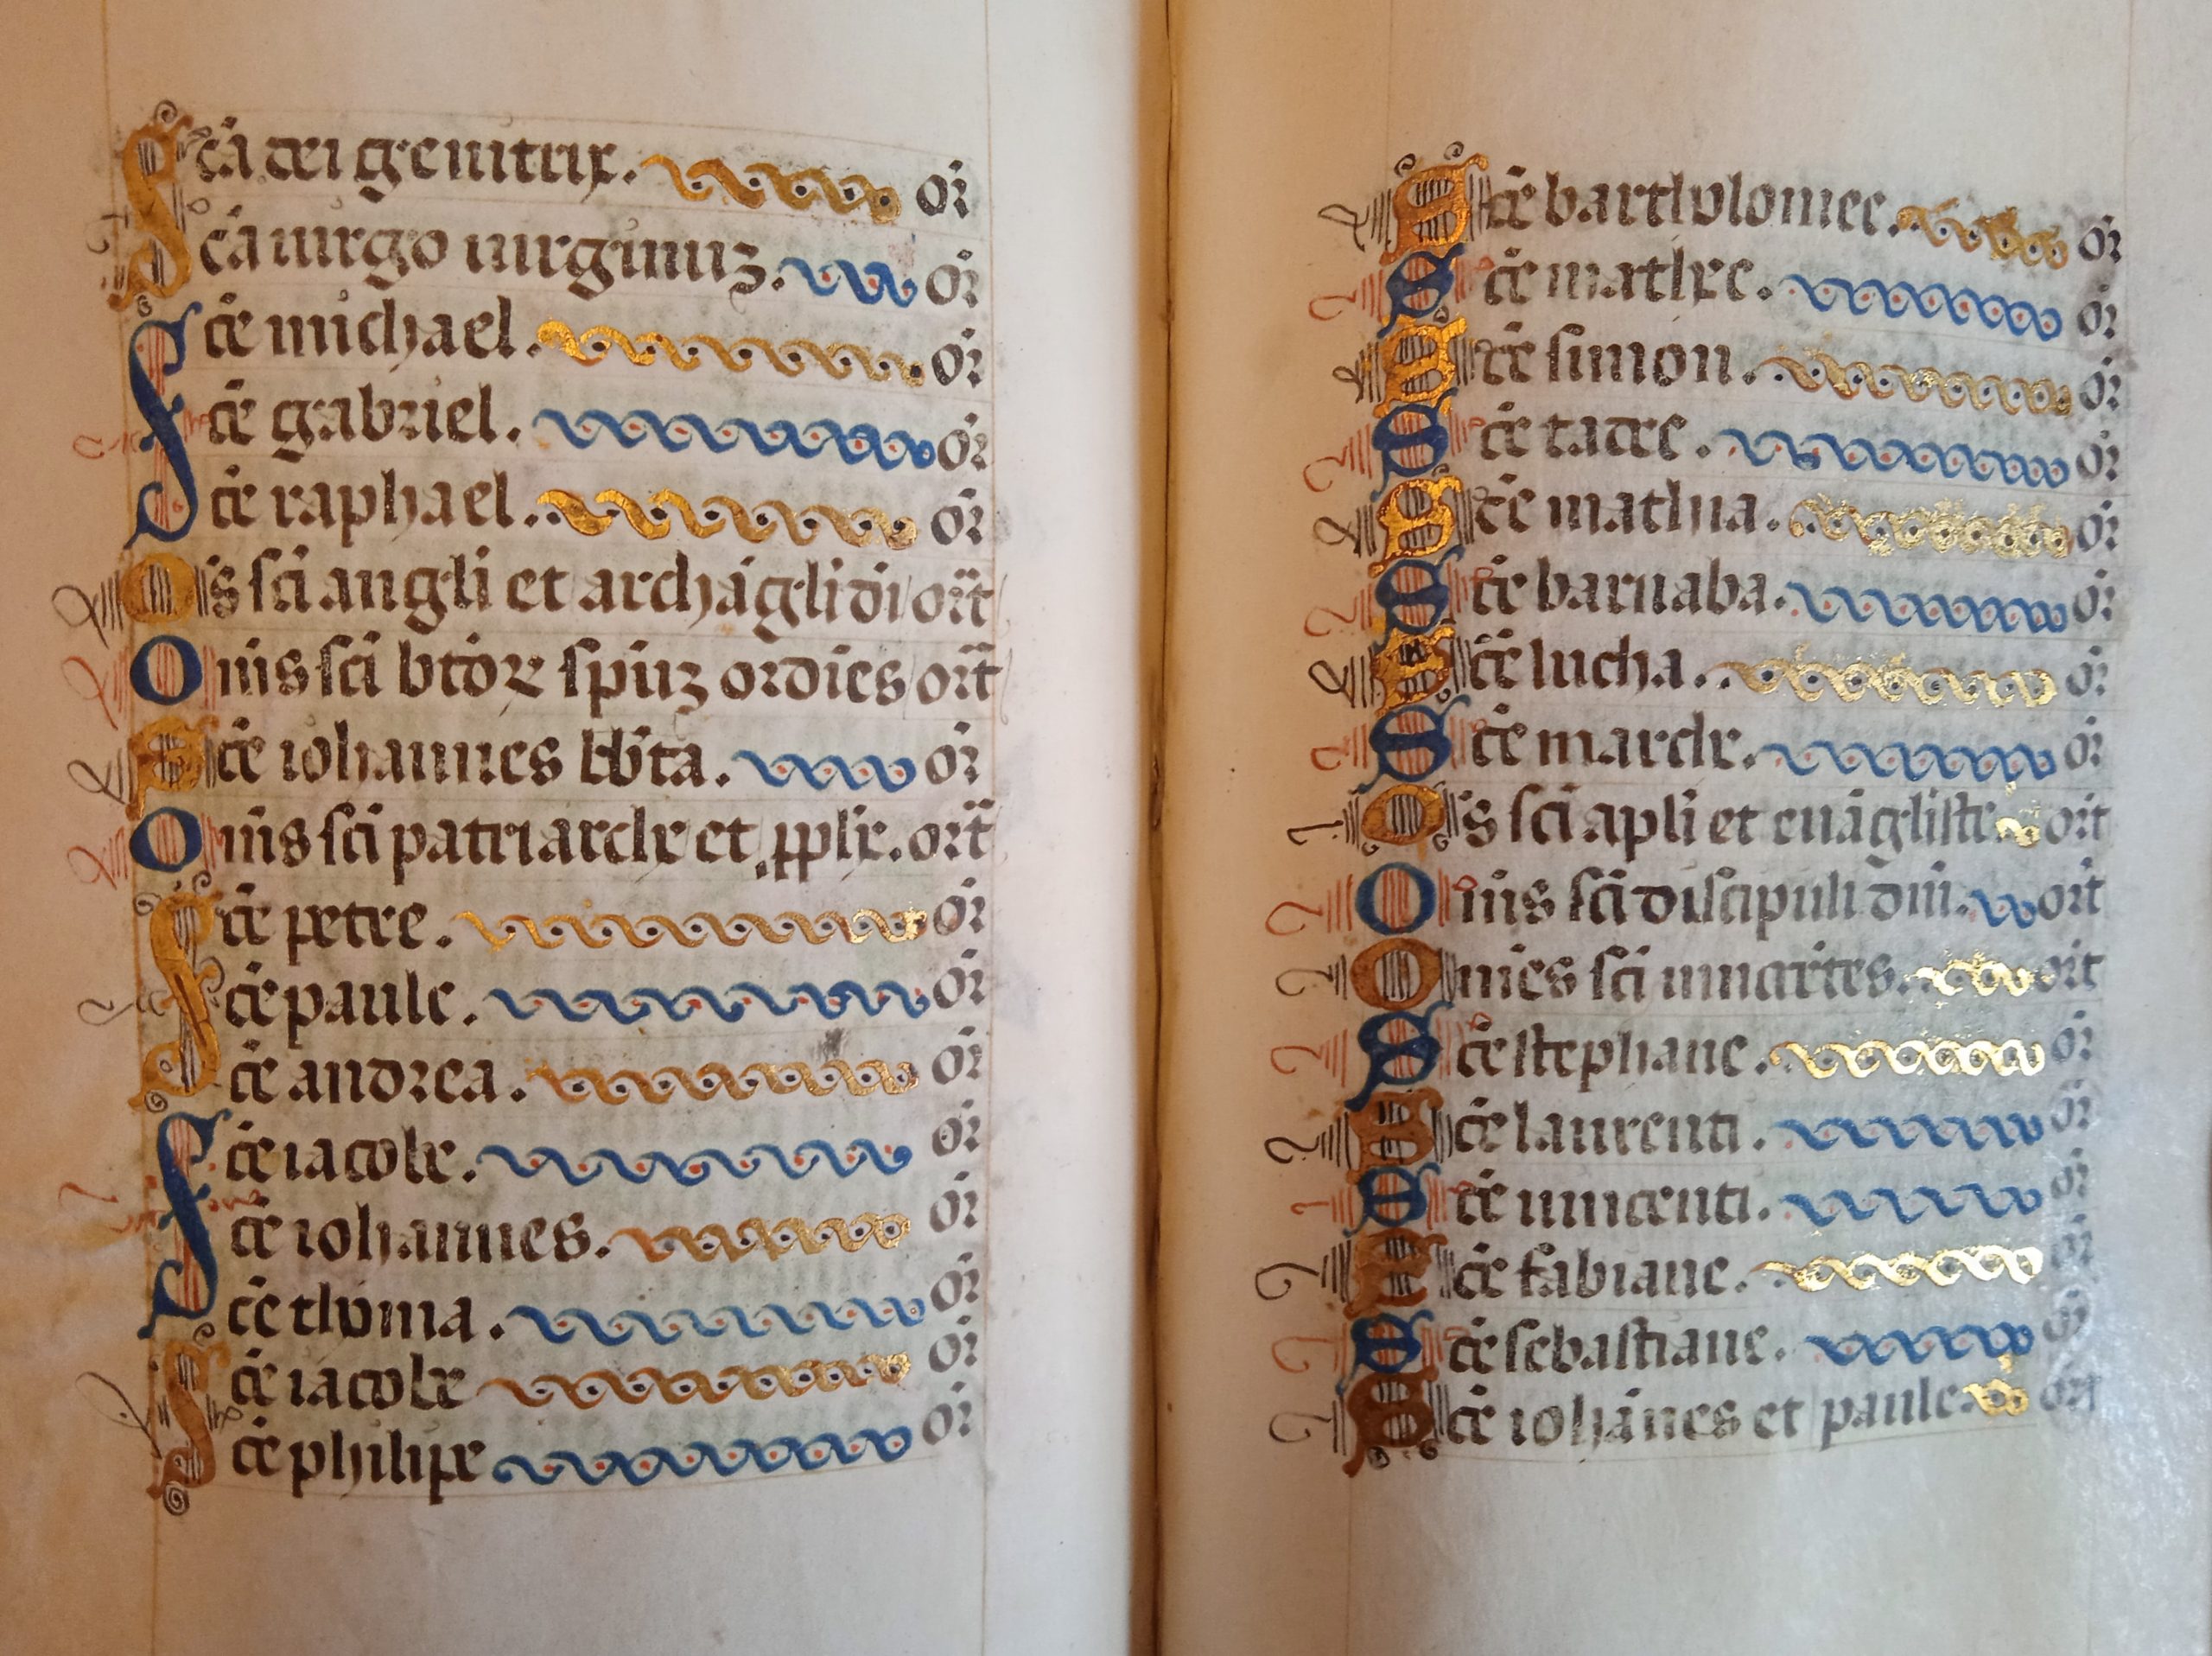 Sc̄a dei genitrix. or̄
sc̄a uirgo uirginuz. or̄
Sc̄e michael. or̄
sc̄e gabriel. or̄
sc̄e raphael. or̄
Oīs sc̄i angli et archāgli di ort̄
Om̄is sc̄i btōꝝ spūz ordies ort̄
Sc̄e iohannes bb̄ta. or̄
Om̄is sc̄i patriarche et pp̄he. ort̄
Sc̄e petre. or̄
sc̄e paule. or̄
sc̄e andrea. or̄
Sc̄e iacobe. or̄
sc̄e iohannes. or̄
sc̄e thoma. or̄
Sc̄e iacobe or̄
sc̄e philipe or̄
Sc̄e bartholomee. or̄
Sc̄e mathee. or̄
Sc̄e simon. or̄
Sc̄e tadee. or̄
Sc̄e mathia. or̄
Sc̄e barnaba. or̄
Sc̄e lucha. or̄
Sc̄e marche. or̄
Oīs sc̄i apli et euāgliste ort̄
Om̄is sc̄i discipuli dn̄i. ort̄
Om̄es sc̄i ort̄
Sc̄e stephane. or̄
Sc̄e laurenti. or̄
Sc̄e uincenti. or̄
Sc̄e fabiane. or̄
Sc̄e sebastiane. or̄
Sc̄e iohānes et paule. ort̄